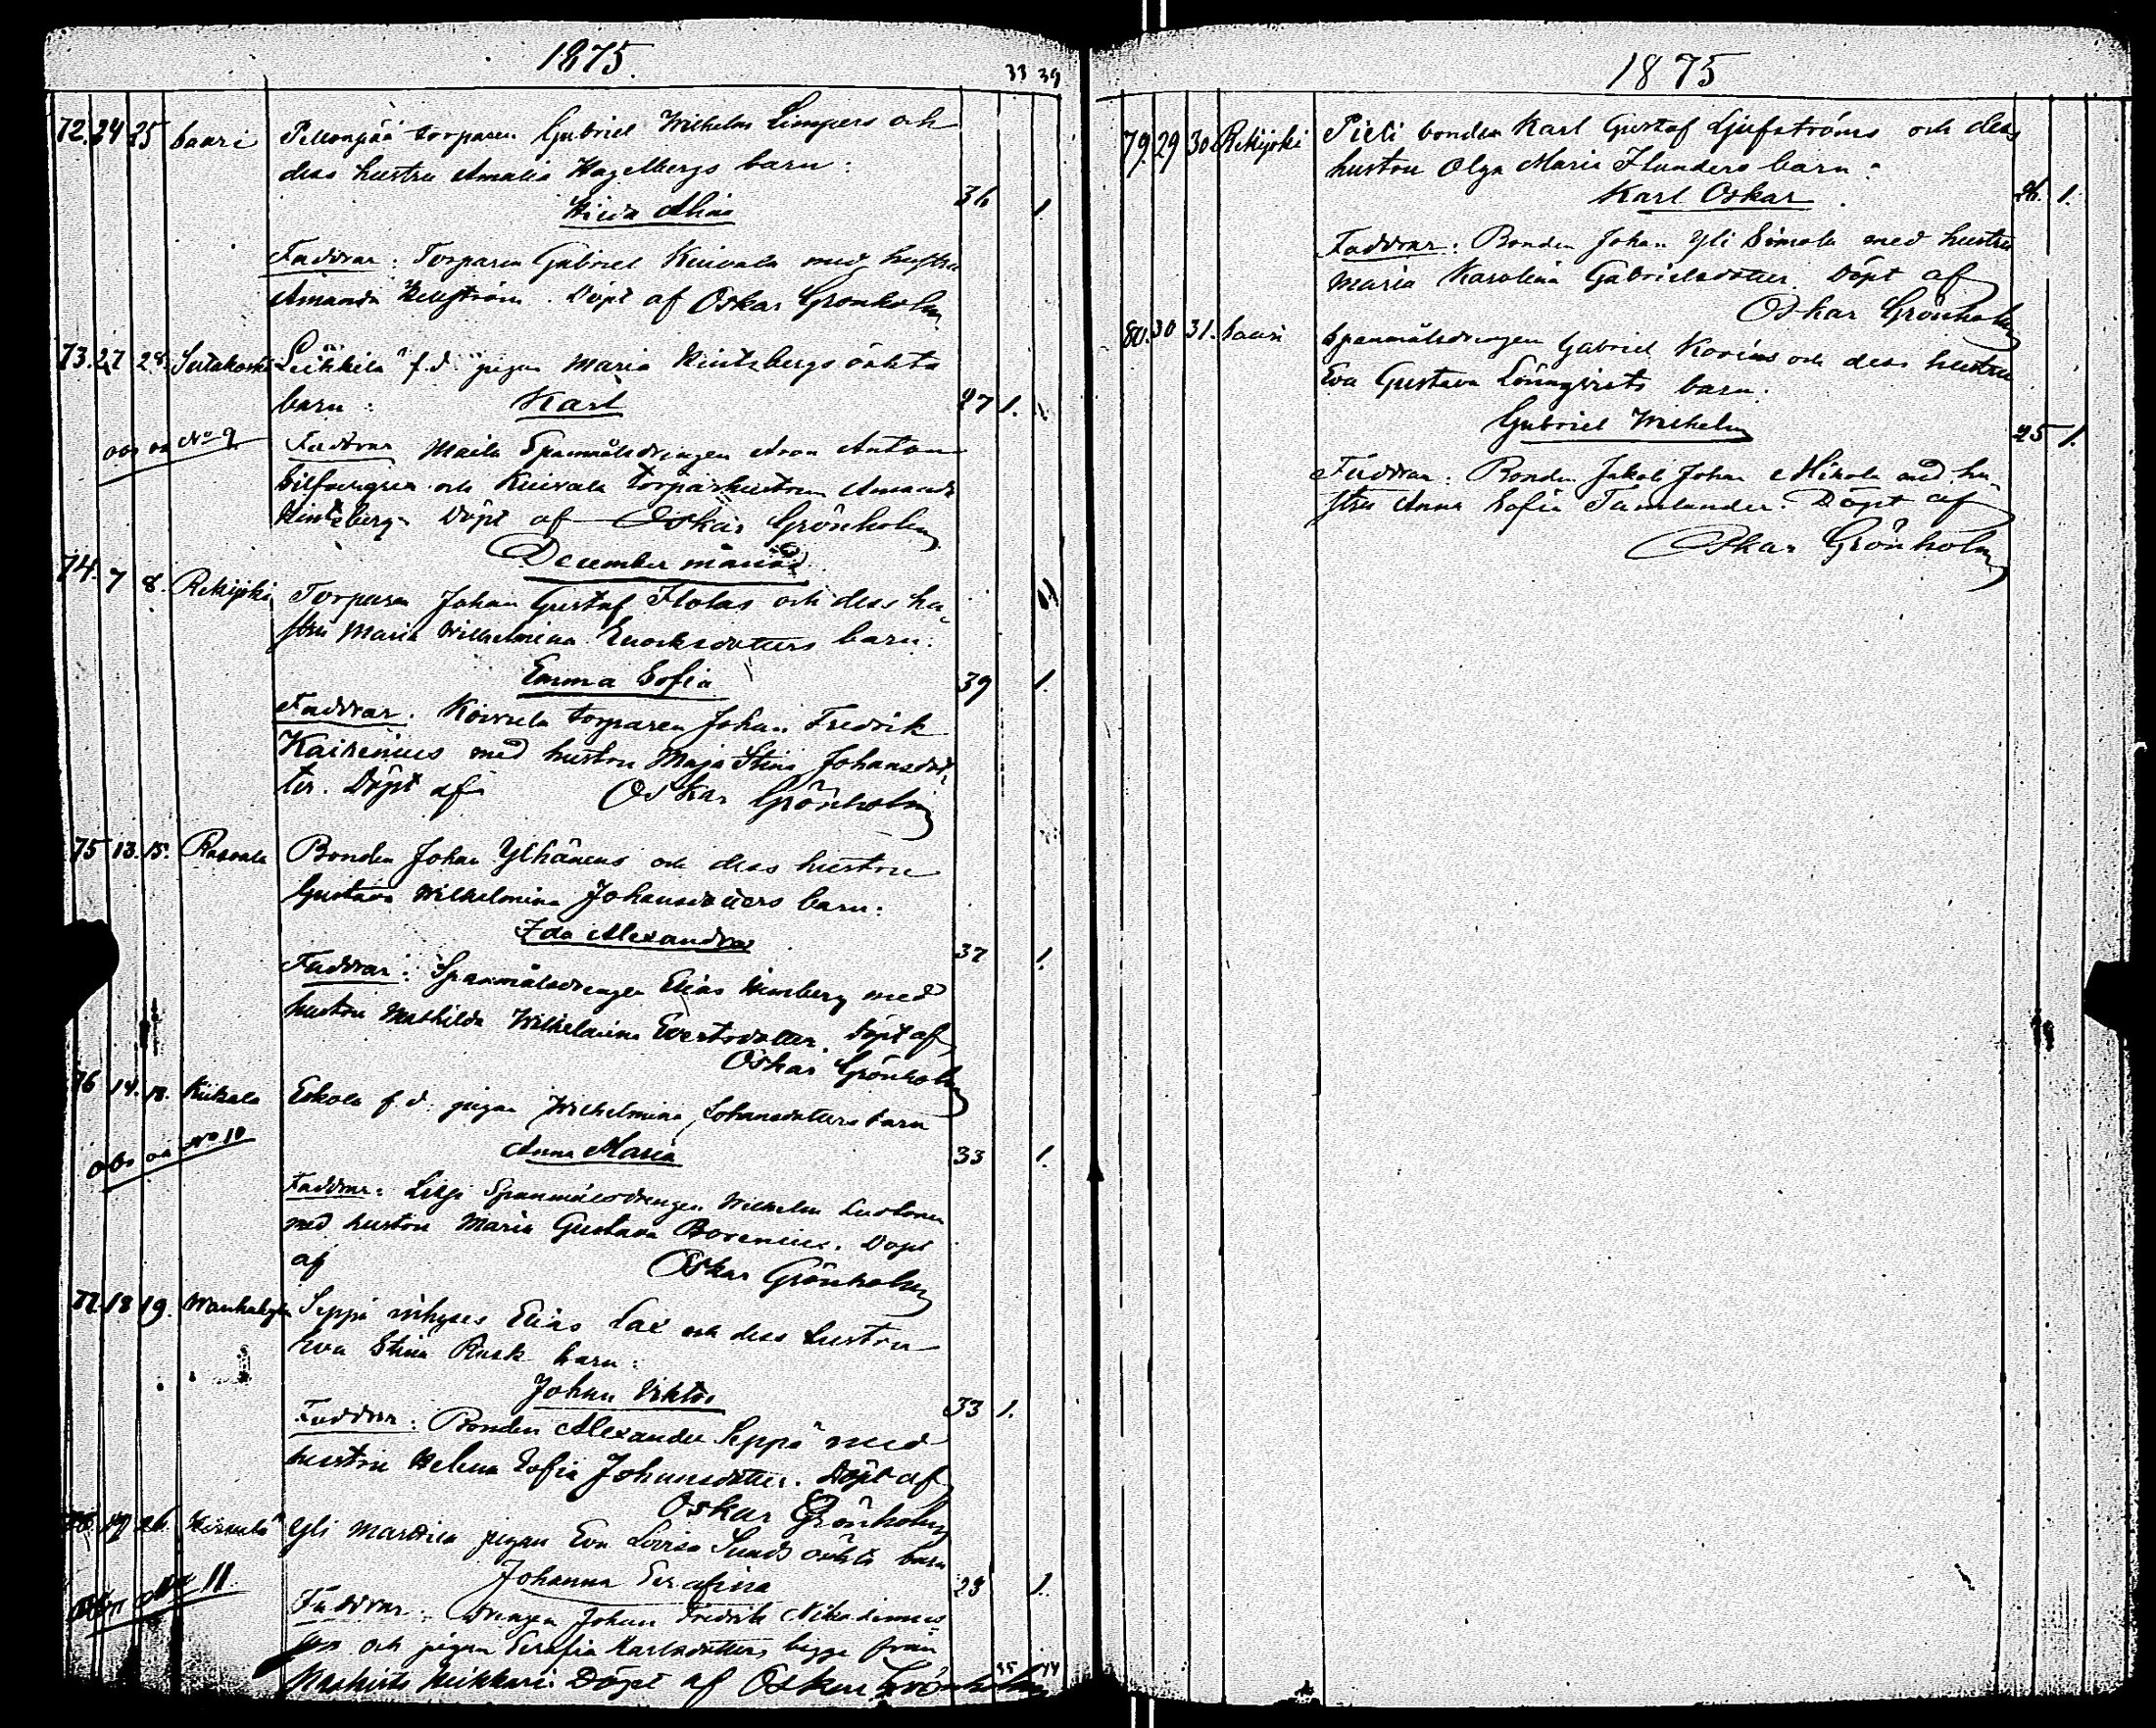 1875.
33 39
72. 24 25 Saari Pellonpää torparen Gabriel Wilhelm Limpers och
dess hustru Amalia Hagelbergs barn:
Hilda Alina 36 1.
Faddrar: Torparen Gabriel Kuivala med hustru
Amanda Hellström. Döpt af Oskar Grönholm
73. 27 28. Sutakoski Leikkilä f.d. pigan Maria Hintzbergs oäkta
barn: Karl 27 1.
obs oä No 9 Faddrar Maila Spanmålsdrängen Aron Anton
Silfvergren och Kuivala torparhustrun Amanda
Hintzberg. Döpt af Oskar Grönholm
December månad.
74. 7 8. Rekijoki Torparen Johan Gustaf Flolas och dess hu-
stru Maria Wilhelmina Enocksdotters barn:
Emma Sofia 39 1.
Faddrar: Koivula torparen Johan Fredrik
Kairenius med hustru Maja Stina Johansdot-
ter. Döpt af Oskar Grönholm
75 13. 15. Rasvala Bonden Johan Ylhänens och dess hustru
Gustava Wilhelmina Johansdotters barn:
Ida Alexandra 37 1.
Faddrar: Spanmålsdrängen Elias Wimberg med
hustru Mathilda Wilhelmina Evertsdotter. Döpt af
Oskar Grönholm
76 14. 18. Kiikala Eskola f.d. pigan Wilhelmina Johansdotters barn
obs oä No 10 Anna Maria 33 1.
Faddrar: Spanmålsdrängen Wilhelm
med hustru Maria Gustava Borenius. Döpt
af Oskar Grönholm
77. 18 19. Wanhakylä Seppä inhyses Elias Lax och dess hustru
Eva Stina Rusk barn:
Johan Viktor 33 1.
Faddrar: Bonden Alexander Seppä med
hustru Helena Sofia Johansdotter. Döpt af
Oskar Grönholm
78 19 26. Hirvelä Yli Marttila pigan Eva Lovisa Sunds oäkta barn
Johanna Serafina 23 1.
No 11 Faddrar: Drängen Johan Fredrik
och pigan Serafia Karlsdotter begge från
Heikkari. Döpt af Oskar Grönholm
1875
79. 29 30 Rekijoki Pieli bonden Karl Gustaf Ljufströms och dess
hustru Olga Maria Flanders barn:
Karl Oskar 26. 1.
Faddrar: Bonden Johan Yli Simola med hustru
Maria Karolina Gabrielsdotter. Döpt af
Oskar Grönholm
80. 30 31. Saari Spanmålsdrängen Gabriel Koréns och dess hustru
Eva Gustava Lönnqvists barn:
Gabriel Wilhelm 25 1.
Faddrar: Bonden Jakob Johan Mikola med hu-
stru Anna Sofia Tamlander. Döpt af
Oskar Grönholm